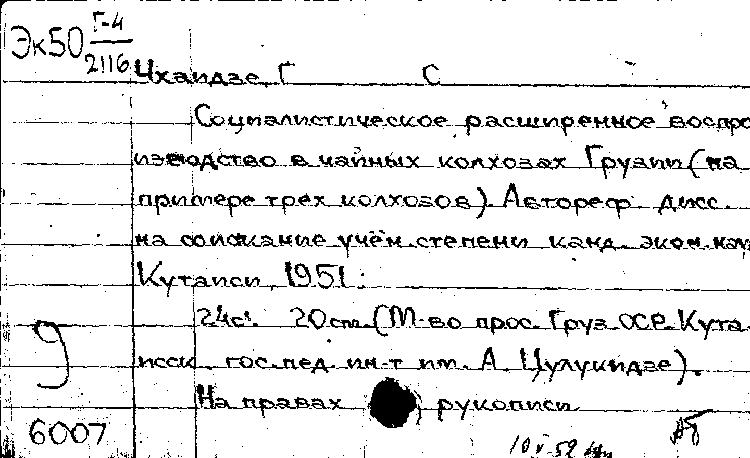 Эк50 Г-4
2116
Чхаидзе, Г С
Социалистическое расширенное воспро-
изводство в чайных колхозах Грузии (на
примере трёх колхозов). Автореф. дисс.
на соискание учён. степени канд. экон. нау
Кутаиси, 1951.
24с. 20см. (М-во прос. Груз. ССР. Кута-
исск. гос. пед. ин-т им. А. Цулукидзе).
На правах рукописи
9
6007
10.V-52